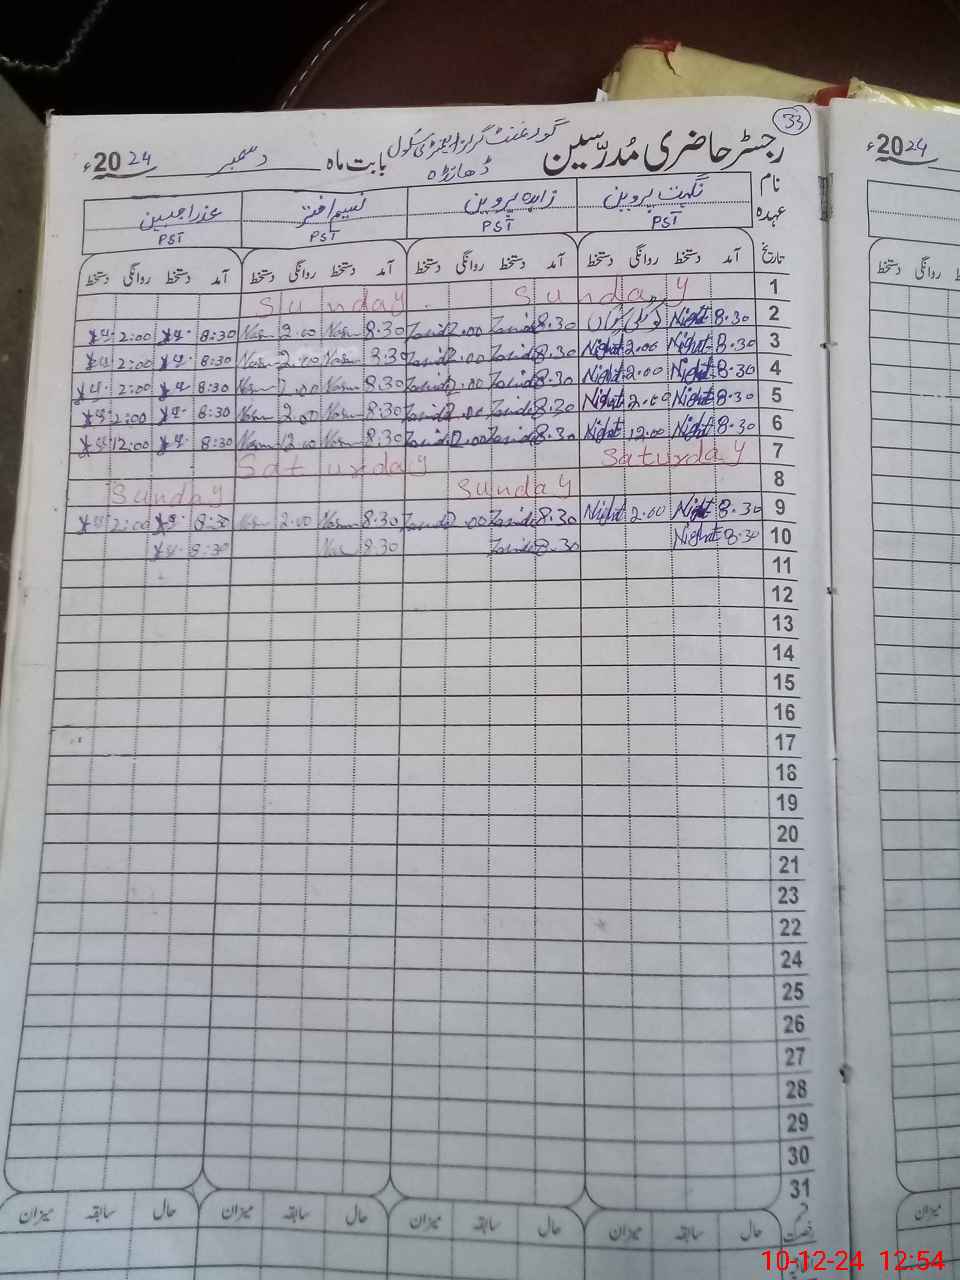 33
رجسٹر حاضری مُدرّسین گورنمنٹ گرلز ایلمنٹری سکول ڈھانڈہ بابت ماہ دسمبر 2024ء
نام نگہت پروین زاہدہ پروین نسیم اختر عذرا جبین
عہدہ PST PST PST PST
تاریخ آمد دستخط روانگی دستخط آمد دستخط روانگی دستخط آمد دستخط روانگی دستخط آمد دستخط روانگی دستخط
1 Sunday Sunday
2 8.30 Night 8.30 Zahida 2.00 8.30 2.00 8:30 2:00
3 8.30 Night 2.00 Night 8.30 2.00 8.30 2.00 8:30 2:00
4 8.30 Night 2.00 Night 8.30 2.00 8.30 2.00 8:30 2:00
5 8.30 Night 2.00 Night 8.30 2.00 8.30 2.00 8:30 2:00
6 8.30 Night 12.00 Night 8.30 12.00 8.30 12.00 8:30 12:00
7 Saturday Saturday
8 Sunday Sunday
9 8.30 Night 2.00 Night 8.30 2.00 8.30 2.00 8:30 2:00
10 8.30 Night 8.30 8.30 8:30
11
12
13
14
15
16
17
18
19
20
21
23
22
24
25
26
27
28
29
30
31
حال سابقہ میزان حال سابقہ میزان حال سابقہ میزان حال سابقہ میزان
2024ء
دستخط روانگی
میزان
10-12-24 12:54